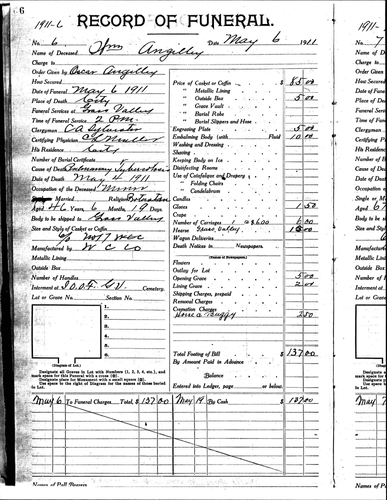 6
1911-6
RECORD OF FUNERAL.
No. 6 Wm Angilley Date May 6 1911
Name of Deceased
Charge to
Order Given by Oscar Angilley
How Secured
Date of Funeral May 6 1911
Place of Death City
Funeral Services at Grass Valley
Time of Funeral Service 2 P.M.
Clergyman
Certifying Physician
His Residence City
Number of Burial Certificate
Cause of Death Pulmonary Tuberculosis
Date of Death May 4 1911
Occupation of the Deceased Miner
Married Religion Protestant
Aged 46 Years, 6 Months, 19 Days
Body to be shipped to Grass Valley
Size and Style of Casket or Coffin
Manufactured by W C Co
Metallic Lining
Outside Box
Number of Handles
Interment at I.O.O.F. G.V. Cemetery.
Lot or Grave No. Section No.
1.
2.
3.
4.
5.
6.
(Diagram of Lot.)
Designate all Graves in Lot with Numbers (1, 2, 3, 4, etc.), and
mark space for this Funeral with a cross
Designate place for Monument with a small square
Use space to the right of Diagram for names of those buried
in Lot.
Price of Casket or Coffin $ 85 00
" Metallic Lining
" Outside Box 5 00
" Grave Vault
" Burial Robe
" Burial Slippers and Hose
Engraving Plate 5 00
Embalming Body (with Fluid 10 00
Washing and Dressing
Shaving
Keeping Body on Ice
Disinfecting Rooms
Use of Catafalque and Drapery
" Folding Chairs
" Candelabrum
Candles
Gloves 1 50
Crape
Number of Carriages 1 @ $6.00 6 00
Hearse Grass Valley 15 00
Wagon Deliveries
Death Notice in Newspapers
(Names of Newspapers.)
Flowers
Outlay for Lot
Opening Grave 5 00
Lining Grave 2 00
Shipping Charges, prepaid
Removal Charges
Cremation Charges
Horse & Buggy 2 50
Total Footing of Bill $ 137 00
By Amount Paid in Advance
Balance $
Entered into Ledger, page or below.
May 6 To Funeral Charges Total, $ 137 00 May 19 By Cash $ 137 00
Names of Pall Bearers
1911-
No. 7